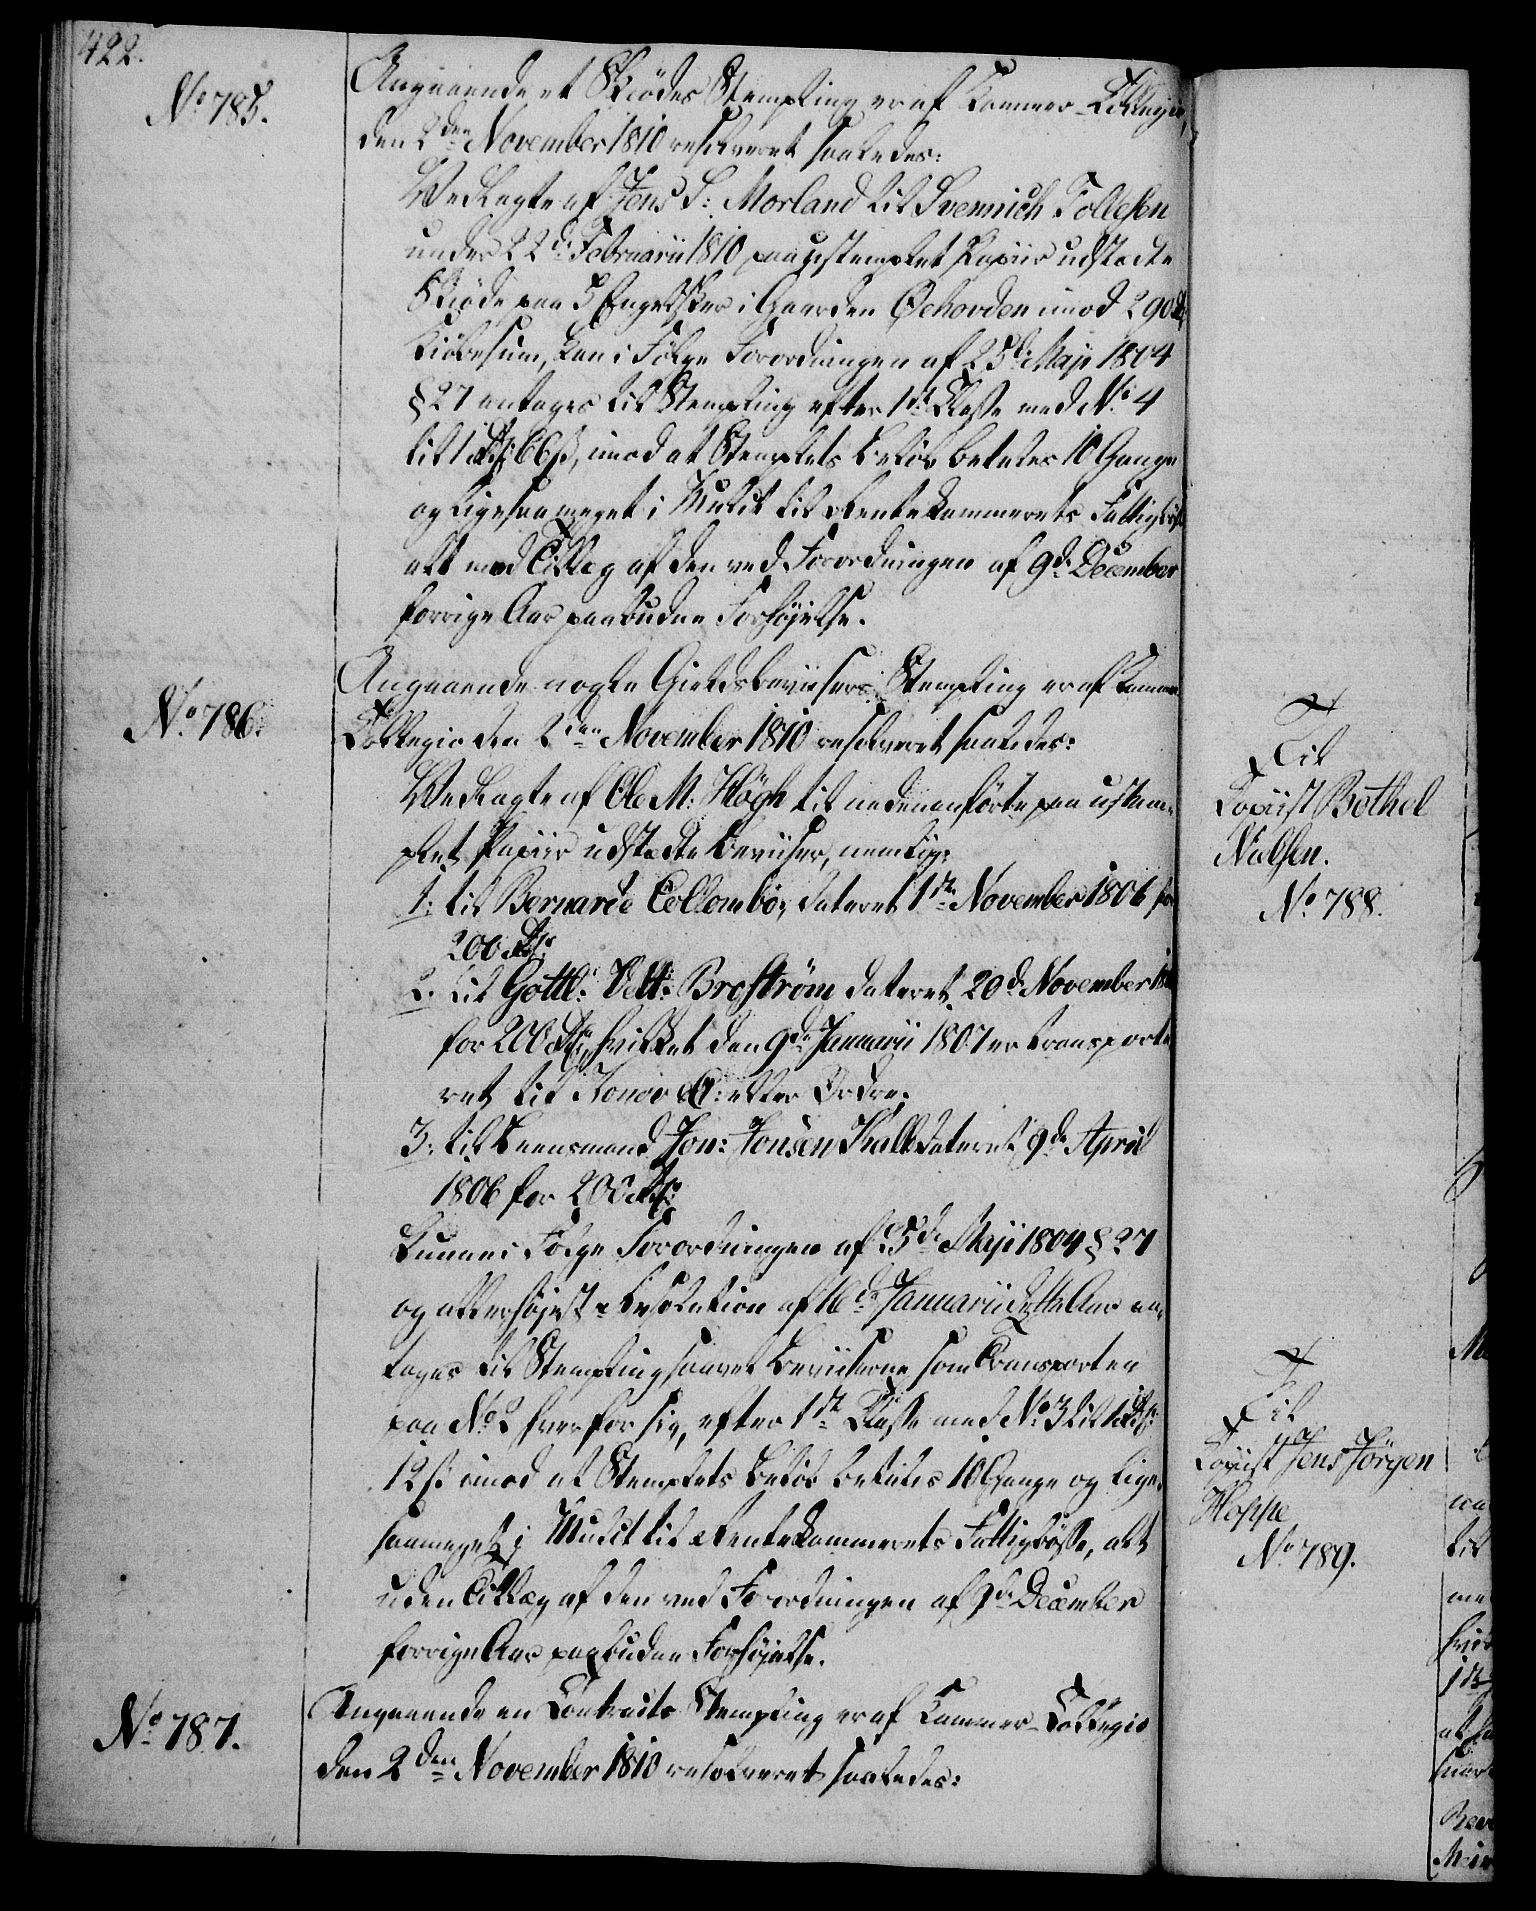 422.
No 785.
Angaaende et Skiødes Stempling er af Kammer-Collegio
den 2den November 1810 resolveret saaledes:
Vedlagte af Jens S: Morland til Svennich Tollefsen
under 22de Februarii 1810 paa ustemplet Papiir udstædte
Skiøde paa 3 Engelsker i Gaarden Øehovden imod 290 rd
Kiøbesum, kan i Følge Forordningen af 25de Maji 1804
§ 27 antages til Stempling efter 1ste Classe med No 4
til 1 Rdlr 66 s, imod at Stemplets Beløb betales 10 Gange
og ligesaameget i Mulct til Rentekammerets Fattigbøsse
alt med Tillæg af den ved Forordningen af 9de December
forrige Aar paabudne Forhøjelse.
No 786.
Angaaende nogle Gieldsbeviisers Stempling er af Kammer
Collegio den 2den November 1810 resolveret saaledes:
Vedlagte af Ole M: Høgh til nedenanførte paa ustem-
plet Papiir udstædte Beviiser, nemlig:
1. til Bernarde Collombo, dateret 1ste November 1806 for
200 Rdlr
2. til Gottl: Velt: Broström dateret 20de November
for 200 Rdlr, hvilket den 9de Januarii 1807 er transporte-
ret til Konov & C: eller Ordre.
3. til Leensmand Jon: Jonsen Kall dateret 9de April
1806 for 200 Rdlr
Kunne i Følge Forordningen af 25de Maji 1804 § 27
og allerhøjeste Resolution af 16de Januarii dette Aar an-
tages til Stempling saavel Beviiserne som Transporten
paa No 2 hver for sig, efter 1ste Classe med No 3 til 1 Rdlr
12 s: imod at Stemplets Beløb betales 10 Gange og lige-
saameget i Mulct til Rentekammerets Fattigbøsse, alt
uden Tillæg af den ved Forordningen af 9de December
forrige Aar paabudne Forhøjelse.
No 787.
Angaaende en Contracts Stempling er af Kammer-Collegio
den 2den November 1810 resolveret saaledes:
Til
Copiist Bothel
Nielsen.
No 788.
Til
Copiist Jens Jörgen
Hoppe
No 789.